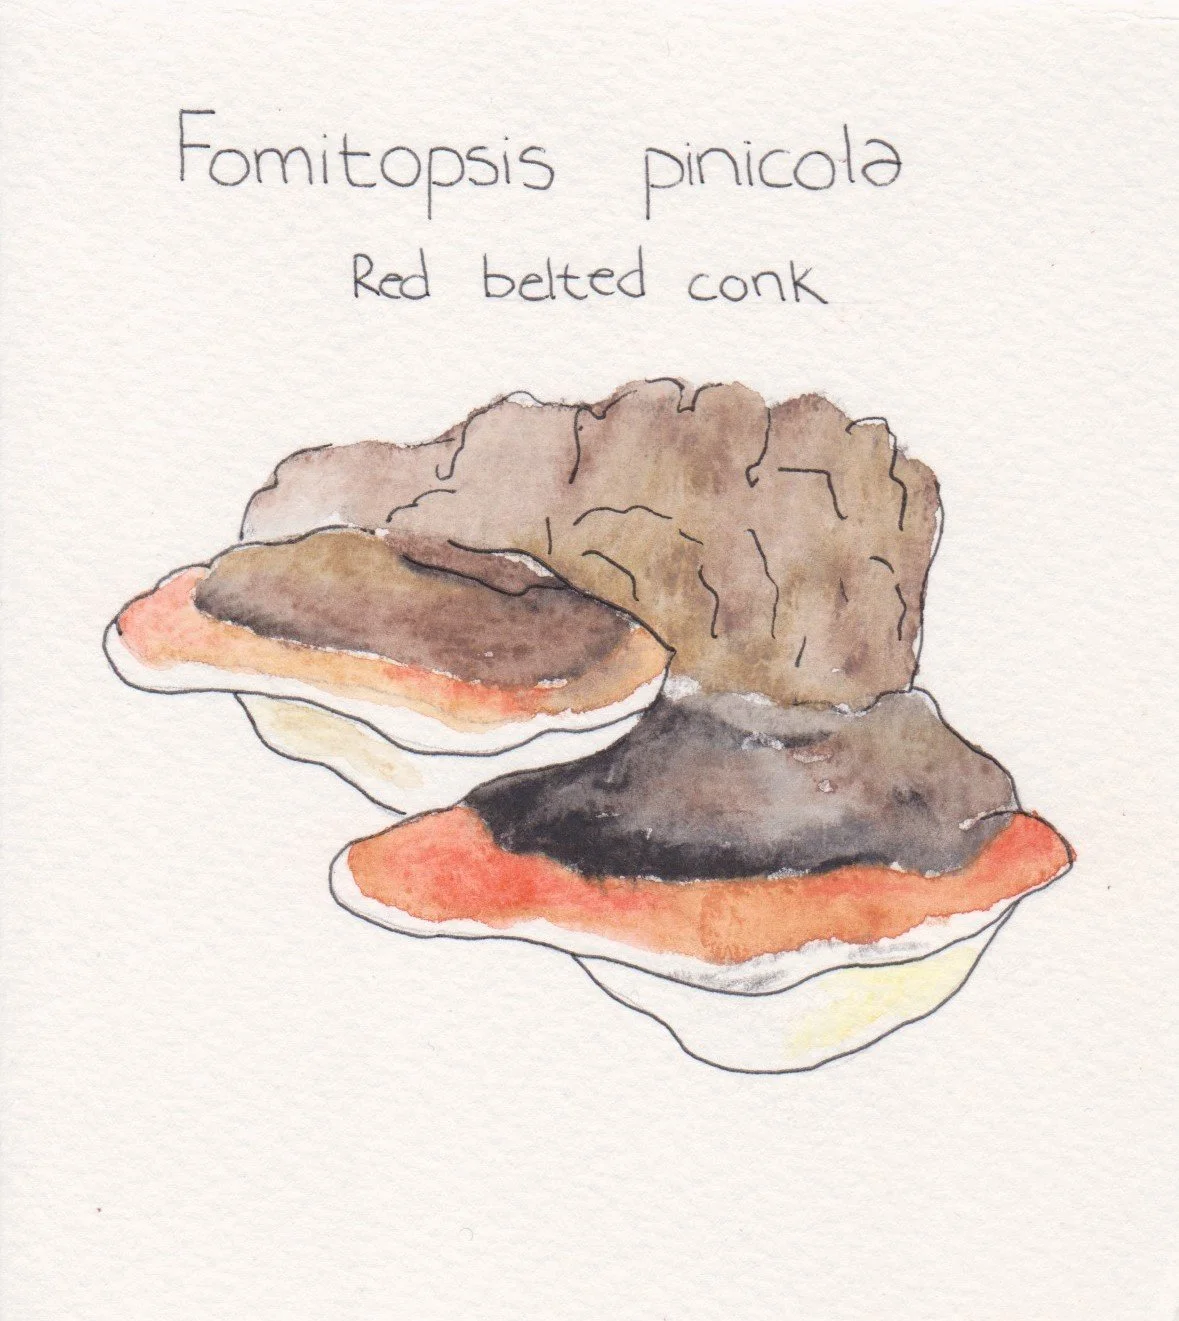 Fomitopsis pinicola
Red belted conk